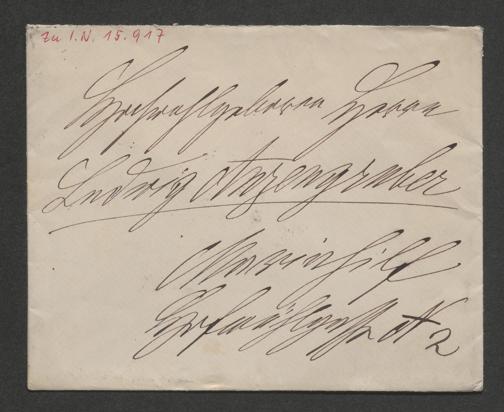 zu I.N. 15.917
Hochwohlgeboren Herrn
Ludwig Anzengruber
Mariahilf
Hofmühlgasse N 2